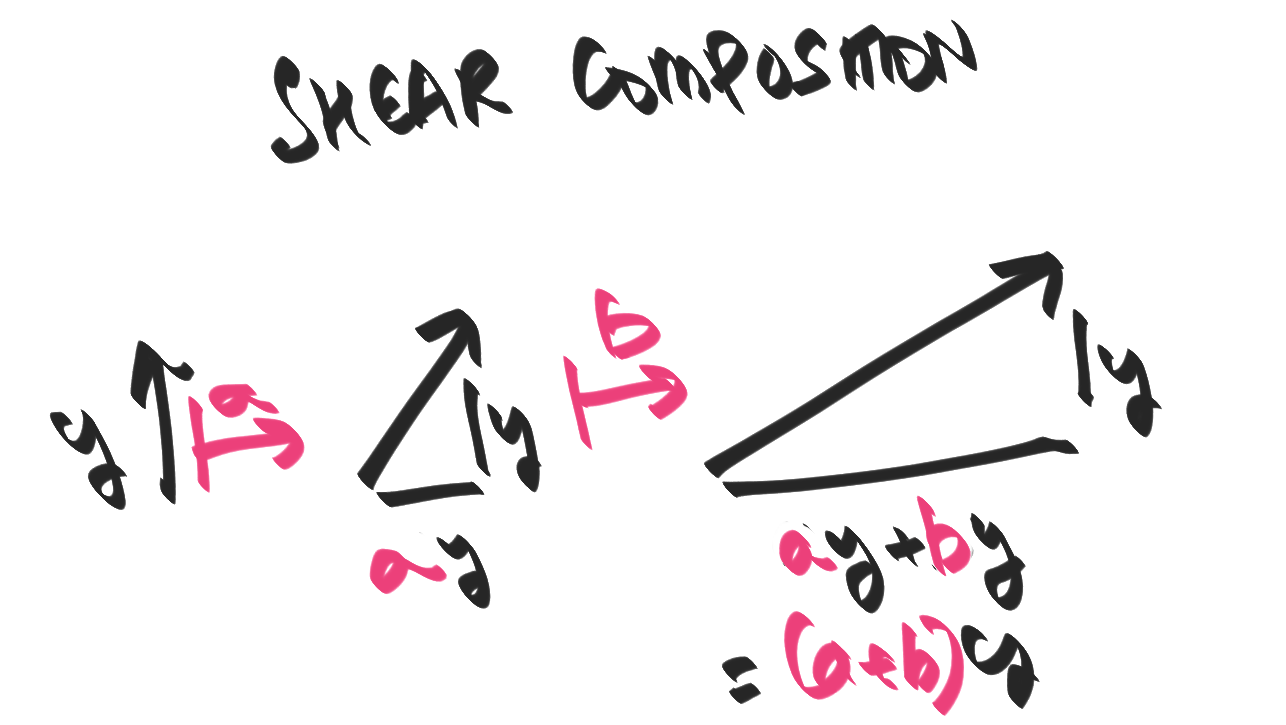 SHEAR COMPOSITION
b
y a y y
ay
ay+by
=(a+b)y